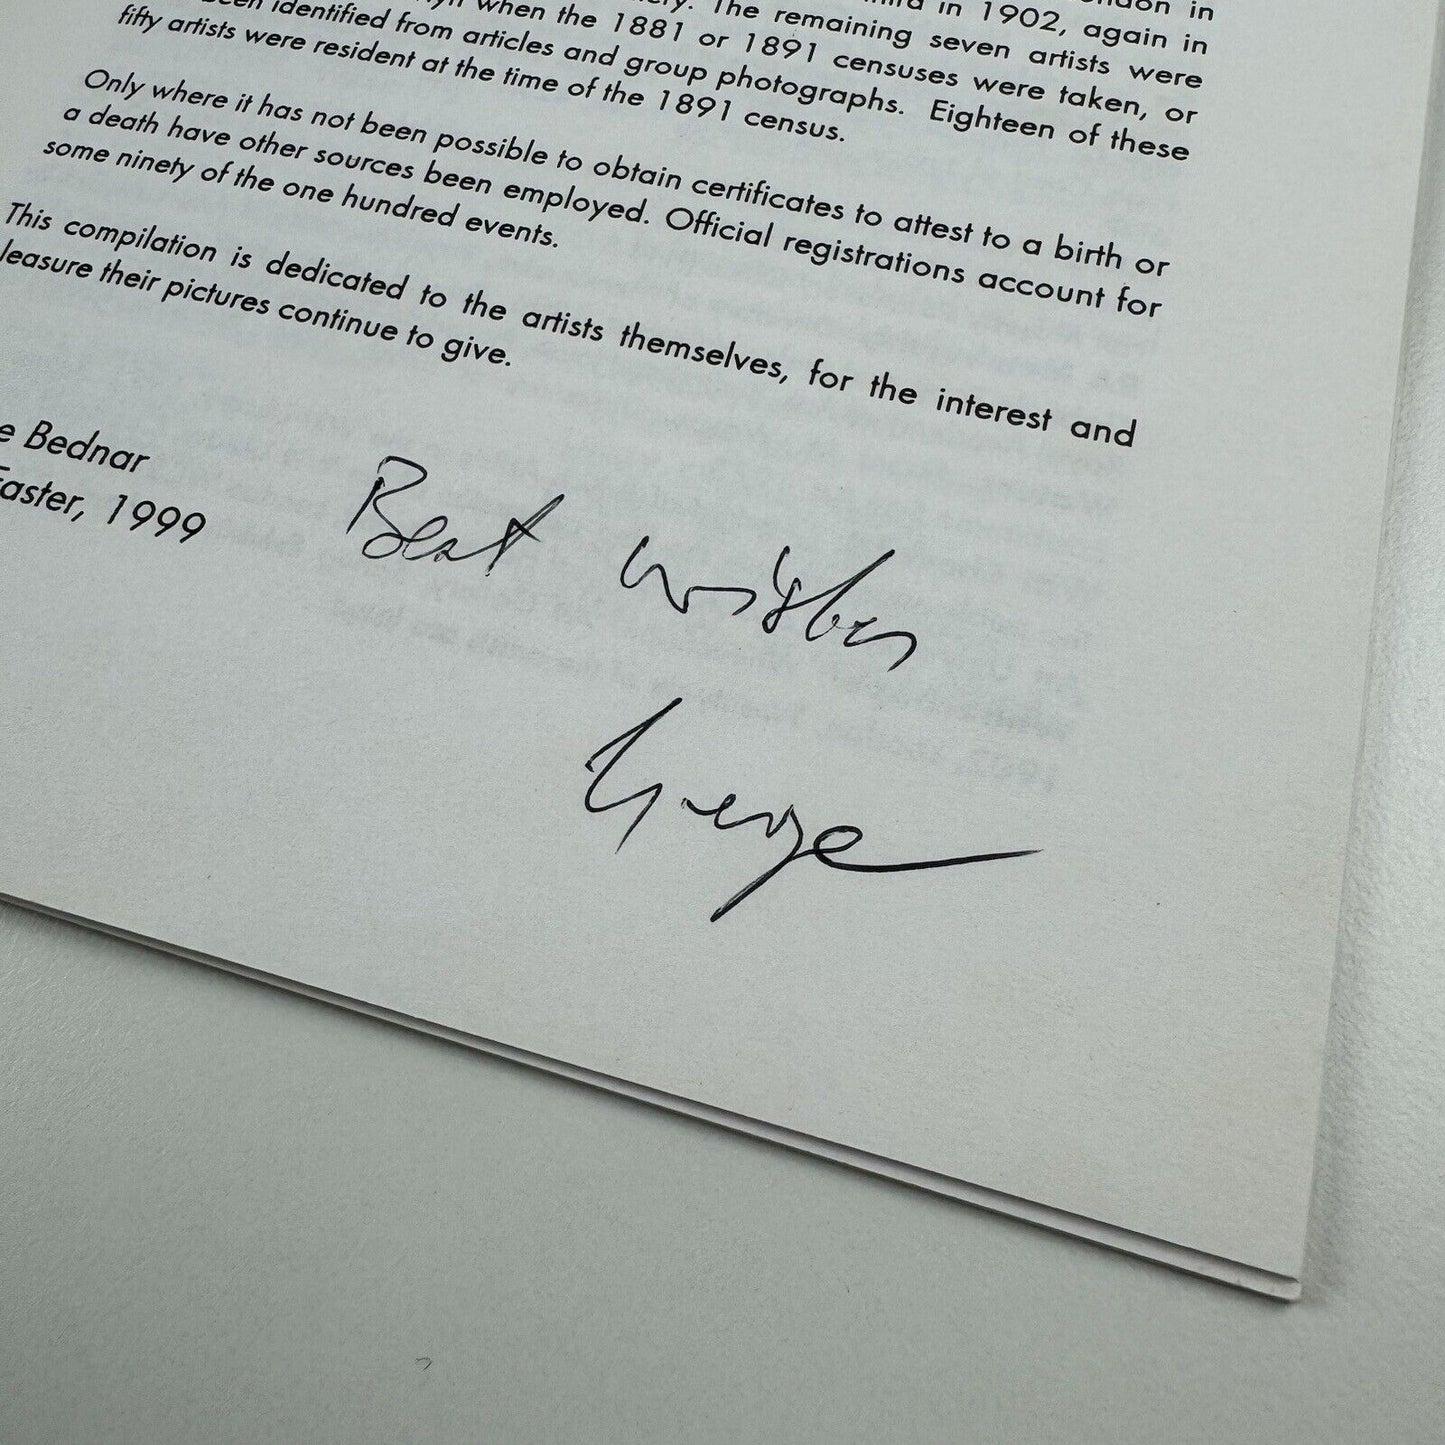 in 1902, again in
The remaining seven artists were
when the 1881 or 1891 censuses were taken, or
identified from articles and group photographs. Eighteen of these
fifty artists were resident at the time of the 1891 census.
Only where it has not been possible to obtain certificates to attest to a birth or
a death have other sources been employed. Official registrations account for
some ninety of the one hundred events.
This compilation is dedicated to the artists themselves, for the interest and
leasure their pictures continue to give.
e Bednar
Easter, 1999
Best wishes
George